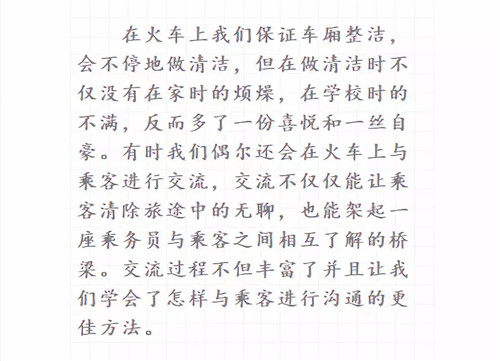 在火车上我们保证车厢整洁，
会不停地做清洁，但在做清洁时不
仅没有在家时的烦燥，在学校时的
不满，反而多了一份喜悦和一丝自
豪。有时我们偶尔还会在火车上与
乘客进行交流，交流不仅仅能让乘
客清除旅途中的无聊，也能架起一
座乘务员与乘客之间相互了解的桥
梁。交流过程不但丰富了并且让我
们学会了怎样与乘客进行沟通的更
佳方法。